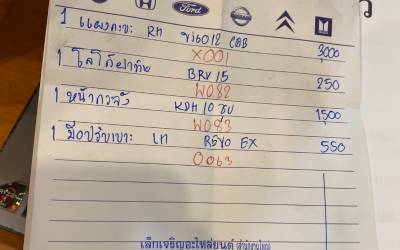 Ford
1 แผงกระ RH วีโก้12 CAB 3,000
X001
1 โลโก้ฝาท้าย BRV 15 250
W082
1 หน้ากระจัง KDH 10 ชุบ 1,500
W083
1 มือปรับเบาะ LH REVO EX 550
0063
เล็กเจริญอะไหล่ยนต์ (สำนักงานใหญ่)